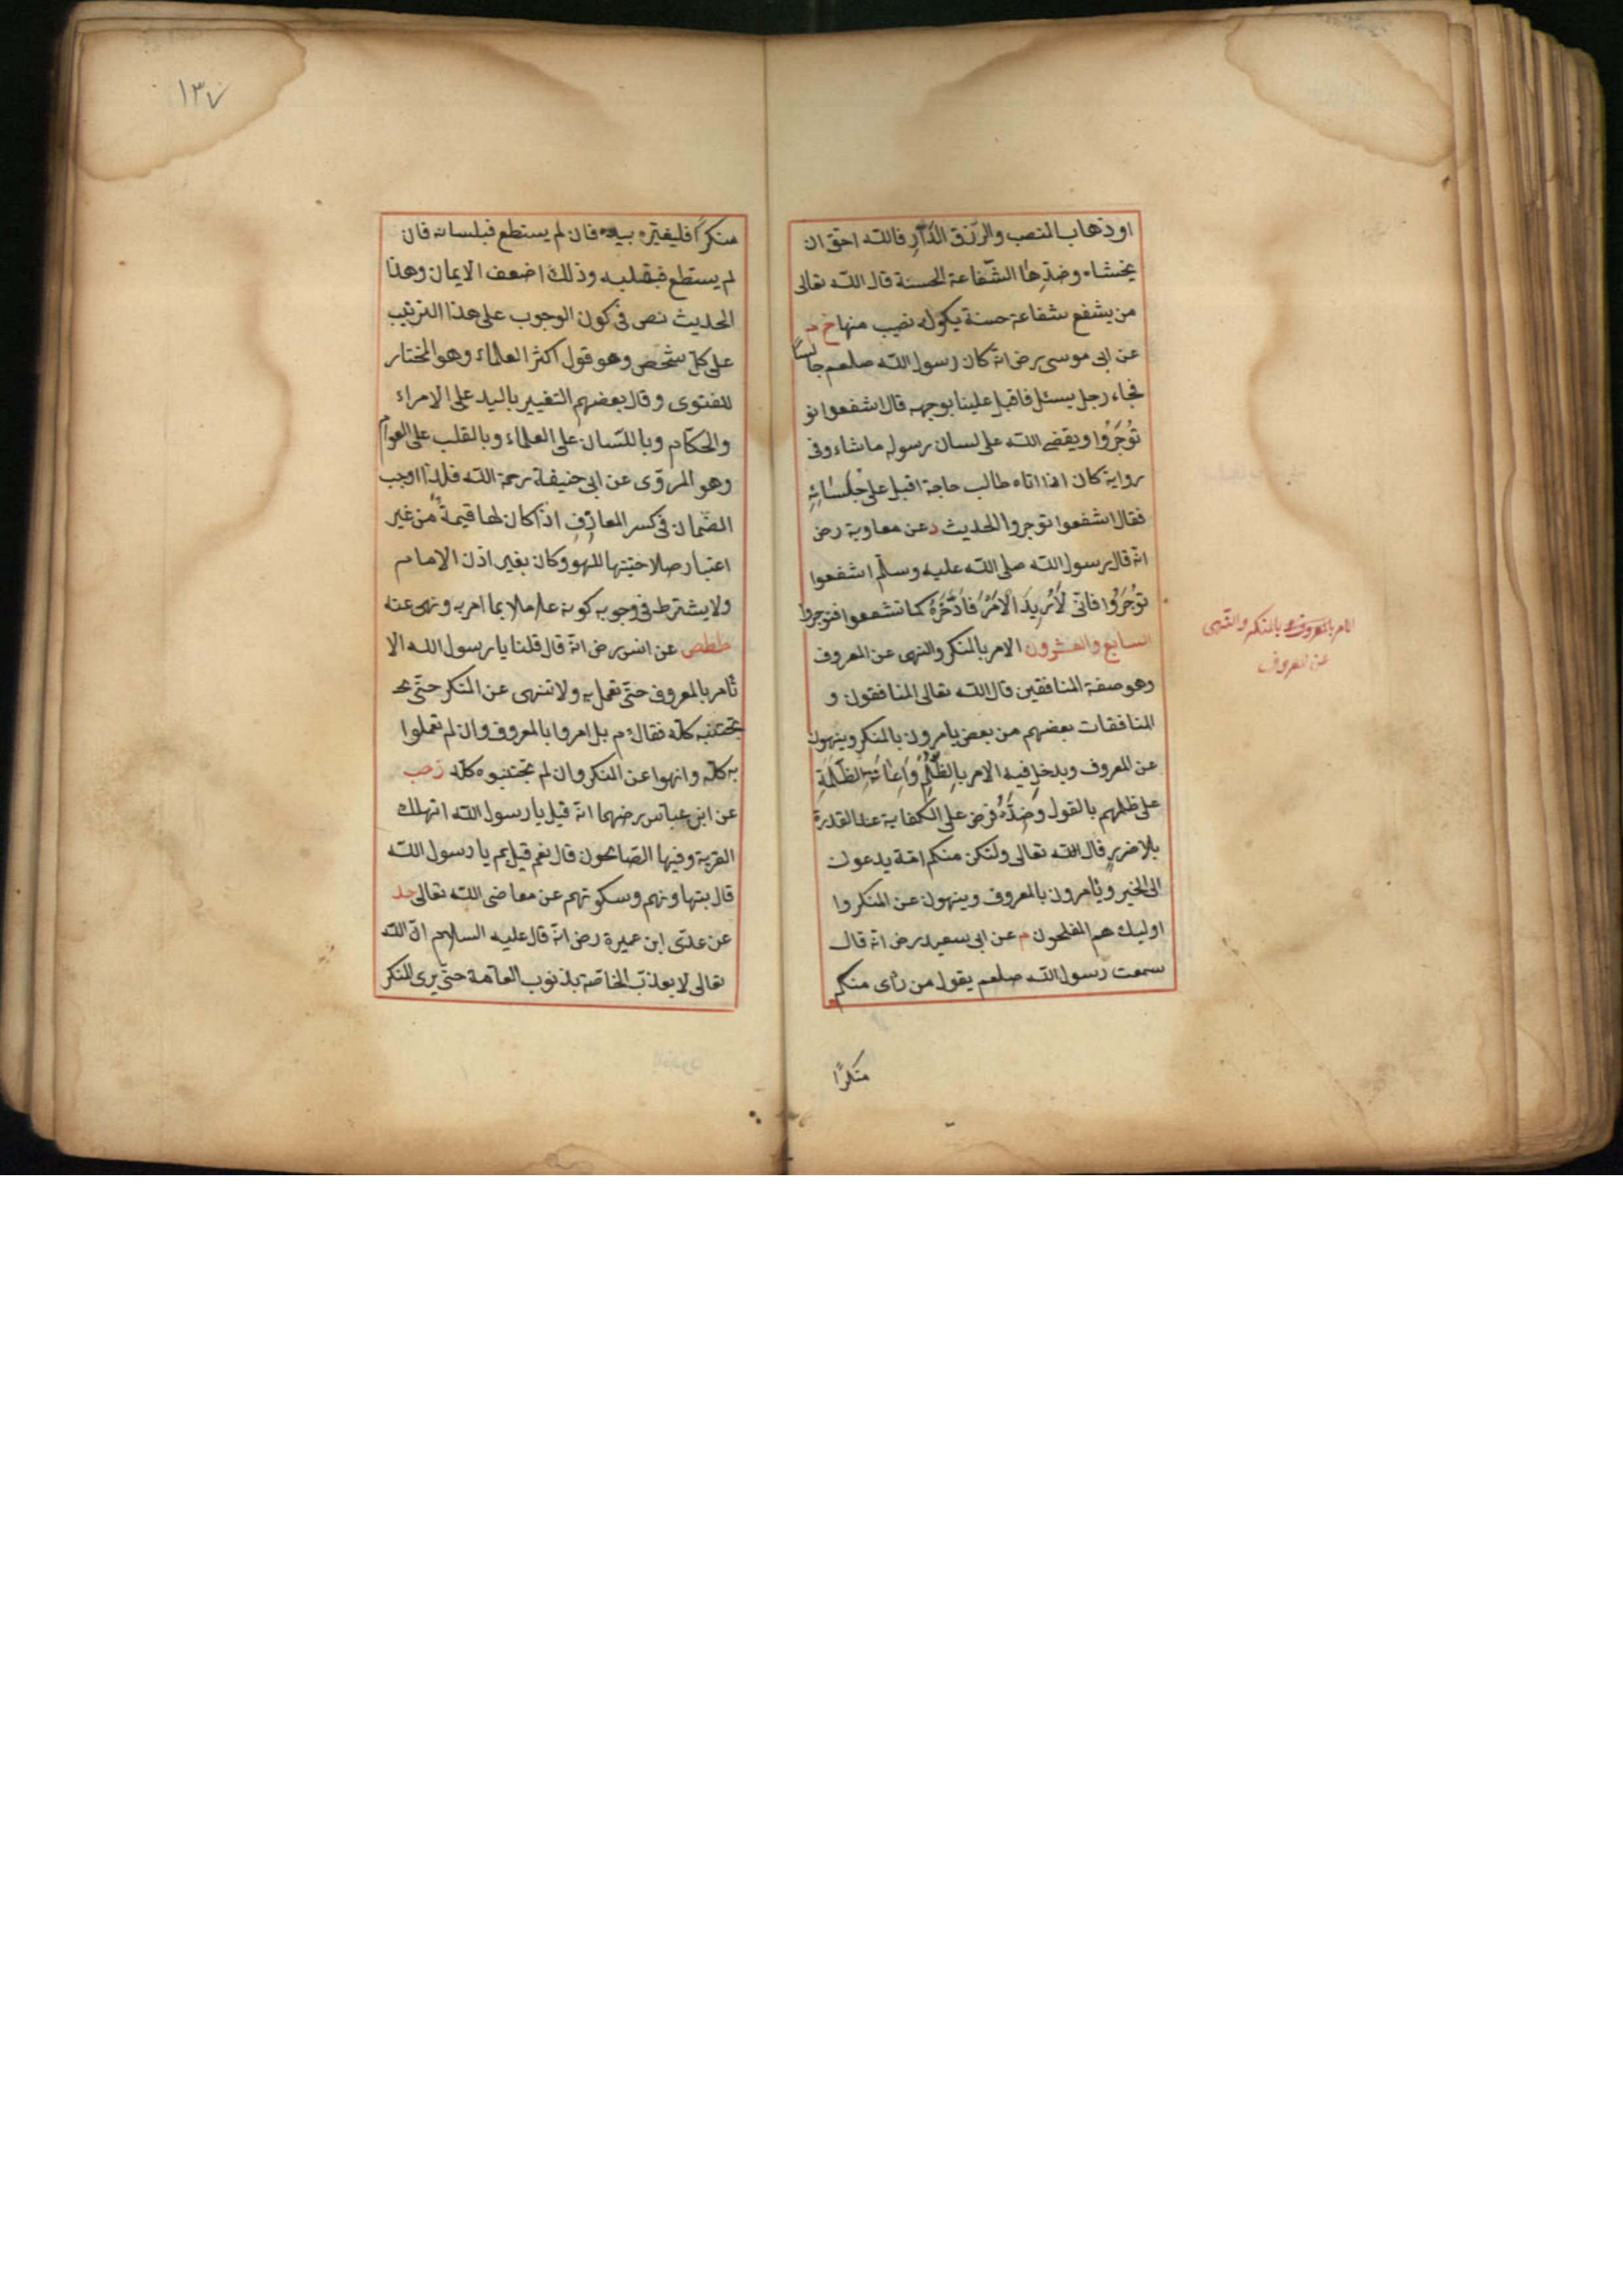 او ذهاب المنصب والرّزق الدّارّ فالله احق ان
يخشاه وضدّها الشّفاعة الحسنة قال الله تعالى
من يشفع شفاعة حسنة يكن له نصيب منها خ م
عن ابى موسى رض انه كان رسول الله صلعم جالسًا
فجاء رجل يسئل فاقبل علينا بوجهه قال اشفعوا تو
تُوجَرُوا ويقضى الله على لسان رسوله ما شاء وفى
رواية كان اذا اتاه طالب حاجة اقبل على جُلَسَائِهِ
فقال اشفعوا توجروا الحديث د عن معاوية رض
انه قال رسول الله صلى الله عليه وسلم اشفعوا
تُوجَرُوا فانّى لَأُرِيدَ الْاَمْرَ فَأُؤَخِّرُهُ كما تشفعوا فتوجروا
السابع والعشرون الامر بالمنكر والنهى عن المعروف
وهو صفة المنافقين قال الله تعالى المنافقون و
المنافقات بعضهم من بعض يامرون بالمنكر وينهون
عن المعروف ويدخل فيه الامر بِالظُّلْمِ وَاِعَانَةِ الظَّلَمَةِ
على ظلمهم بالقول وضدّه فرض على الكفاية عند القدرة
بلا ضرر قال الله تعالى ولتكن منكم امة يدعون
الى الخير ويأمرون بالمعروف وينهون عن المنكر وا
اولئك هم المفلحون م عن ابى سعيد رض انه قال
سمعت رسول الله صلعم يقول من رأى منكم
منكرًا
الامر بالمعروف بالمنكر والنهى
عن المعروف
١٣٧
منكرًا فليغيّره بيده فان لم يستطع فبلسانه فان
لم يستطع فبقلبه وذلك اضعف الايمان وهذا
الحديث نص فى كون الوجوب على هذا الترتيب
على كل شخص وهو قول اكثر العلماء وهو المختار
للفتوى وقال بعضهم التغيير باليد على الامراء
والحكام وباللسان على العلماء وبالقلب على العوام
وهو المروى عن ابى حنيفة رحمة الله فلذا اوجب
الضّمان فى كسر المعازف اذا كان لها قيمة من غير
اعتبار صلاحيتها للهو وكان بغير اذن الامام
ولا يشترط فى وجوبه كونه عاملا بما امر به ونهى عنه
ططص عن انس رض انه قال قلنا يا رسول الله الا
نأمر بالمعروف حتّى نعمل به ولا ننهى عن المنكر حتّى نج
نجتنبه كلّه فقال م بل امروا بالمعروف وان لم تعملوا
به كلّه وانهوا عن المنكر وان لم تجتنبوه كلّه زحب
عن ابن عباس رضهما انه قيل يا رسول الله اتهلك
القرية وفيها الصالحون قال نعم قيل بم يا رسول الله
قال بتهاونهم وسكوتهم عن معاصى الله تعالى حد
عن عدى ابن عميرة رض انه قال عليه السلام ان الله
تعالى لا يعذب الخاصّة بذنوب العامة حتّى يرى المنكر